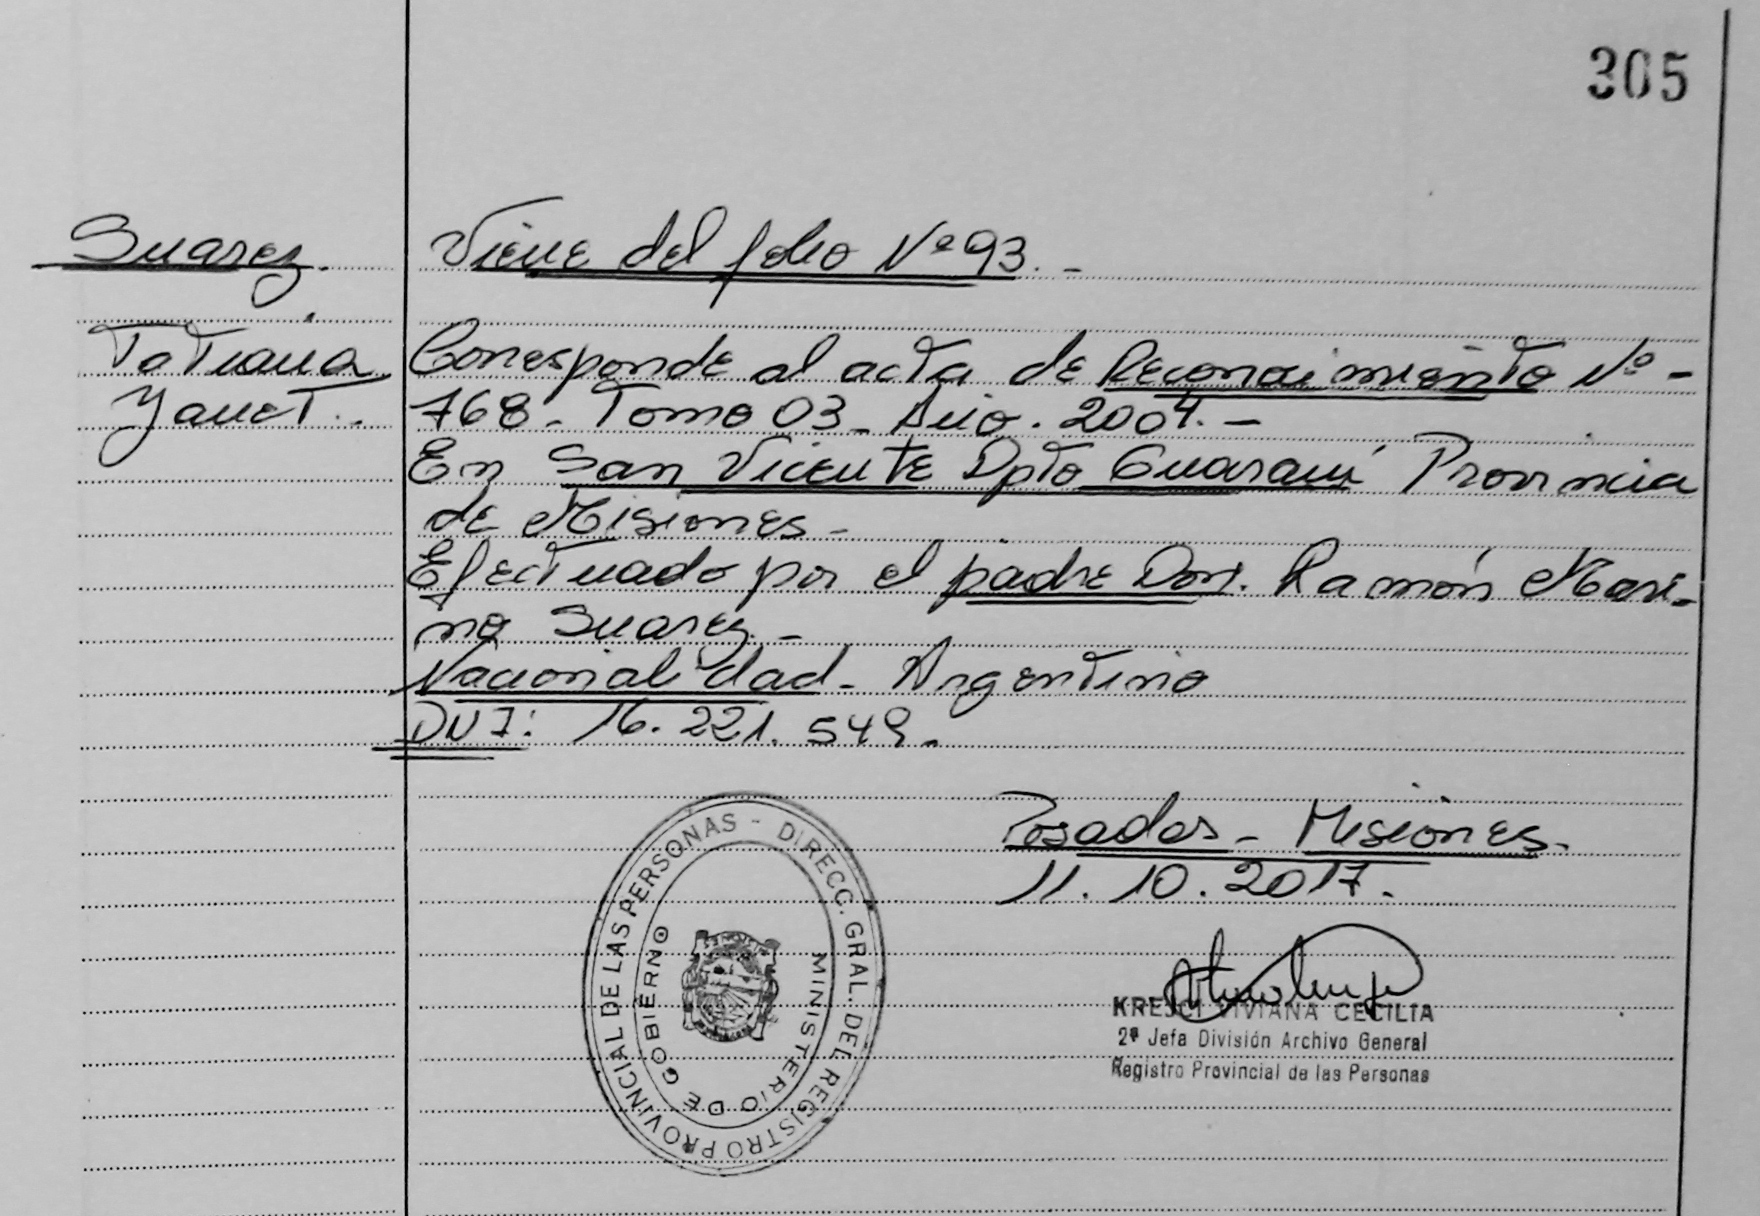 305
Suarez.
Tatiana
Yanet.
Viene del folio Nº 93.-
Corresponde al acta de Reconocimiento Nº-
768- Tomo 03- Año. 2004.-
En San Vicente Dpto Guaraní Provincia
de Misiones-
Efectuado por el padre Don. Ramón Mari-
no Suarez-
Nacionalidad- Argentino
DNI: 16.221.549-
Posadas- Misiones.
11.10.2017.
DIRECC. GRAL. DEL REGISTRO PROVINCIAL DE LAS PERSONAS -
MINISTERIO DE GOBIERNO
KREJCI VIVIANA CECILIA
2ª Jefa División Archivo General
Registro Provincial de las Personas